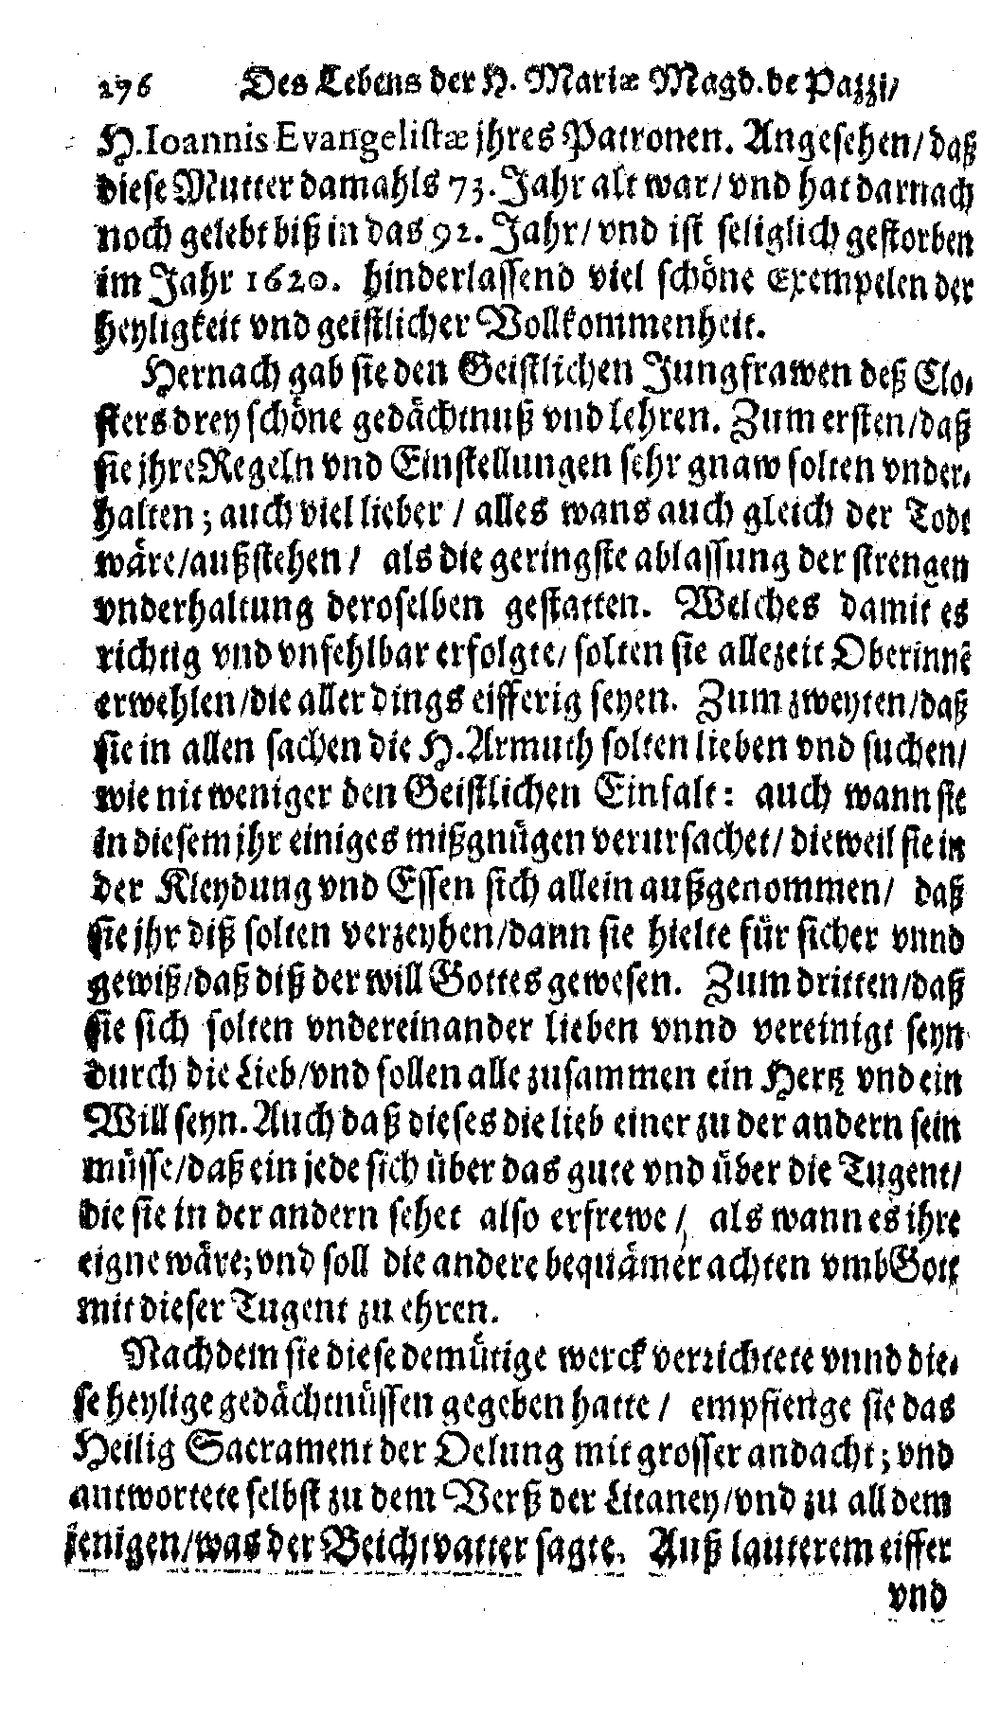 276 Des Lebens der H. Mariæ Magd. de Pazzi/
H. Ioannis Evangelistæ jhres Patronen. Angesehen/daß
diese Mutter damahls 73. Jahr alt war/vnd hat darnach
noch gelebt biß in das 92. Jahr/vnd ist seliglich gestorben
im Jahr 1620. hinderlassend viel schöne Exempelen der
heyligkeit vnd geistlicher Vollkommenheit.
Hernach gab sie den Geistlichen Jungfrawen deß Clo-
sters drey schöne gedächtnuß vnd lehren. Zum ersten/daß
sie jhre Regeln vnd Einstellungen sehr gnaw solten vnder-
halten; auch viel lieber / alles wans auch gleich der Todt
wäre/außstehen/ als die geringste ablassung der strengen
vnderhaltung deroselben gestatten. Welches damit es
richtig vnd vnfehlbar erfolgte/ solten sie allezeit Oberinnē
erwehlen/die aller dings eifferig seyen. Zum zweyten/daß
sie in allen sachen die H. Armuth solten lieben vnd suchen/
wie nit weniger den Geistlichen Einfalt: auch wann sie
in diesem jhr einiges mißgnügen verursachet/ dieweil sie in
der Kleydung vnd Essen sich allein außgenommen/ daß
sie jhr diß solten verzeyhen/dann sie hielte für sicher vnnd
gewiß/daß diß der will Gottes gewesen. Zum dritten/daß
sie sich solten vndereinander lieben vnnd vereinigt seyn
durch die Lieb/vnd sollen alle zusammen ein Hertz vnd ein
Will seyn. Auch daß dieses die lieb einer zu der andern sein
müsse/daß ein jede sich über das gute vnd über die Tugent/
die sie in der andern sehet also erfrewe/ als wann es ihre
eigne wäre; vnd soll die andere bequämer achten vmb Gott
mit dieser Tugent zu ehren.
Nachdem sie diese demütige werck verzichtete vnnd die-
se heylige gedächtnüssen gegeben hatte/ empfienge sie das
Heilig Sacrament der Oelung mit grosser andacht; vnd
antwortete selbst zu dem Verß der Litaney/vnd zu all dem
jenigen/was der Beichtvatter sagte. Auß lauterem eiffer
vnd